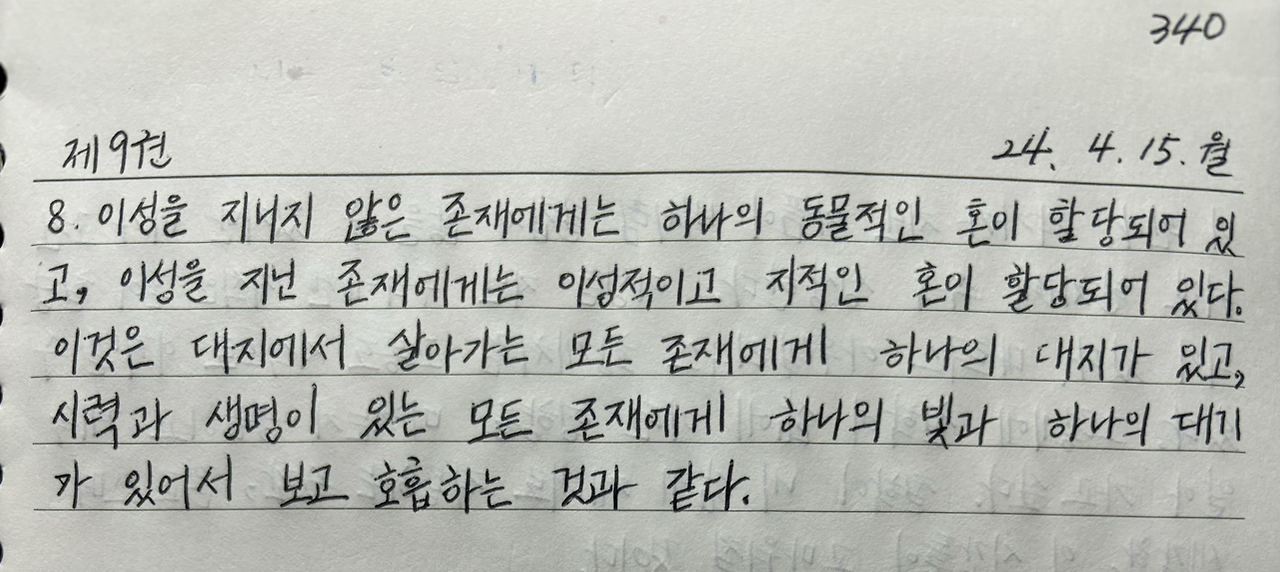 340
제9권 24. 4. 15. 월
8. 이성을 지니지 않은 존재에게는 하나의 동물적인 혼이 할당되어 있
고, 이성을 지닌 존재에게는 이성적이고 지적인 혼이 할당되어 있다.
이것은 대지에서 살아가는 모든 존재에게 하나의 대지가 있고,
시력과 생명이 있는 모든 존재에게 하나의 빛과 하나의 대기
가 있어서 보고 호흡하는 것과 같다.